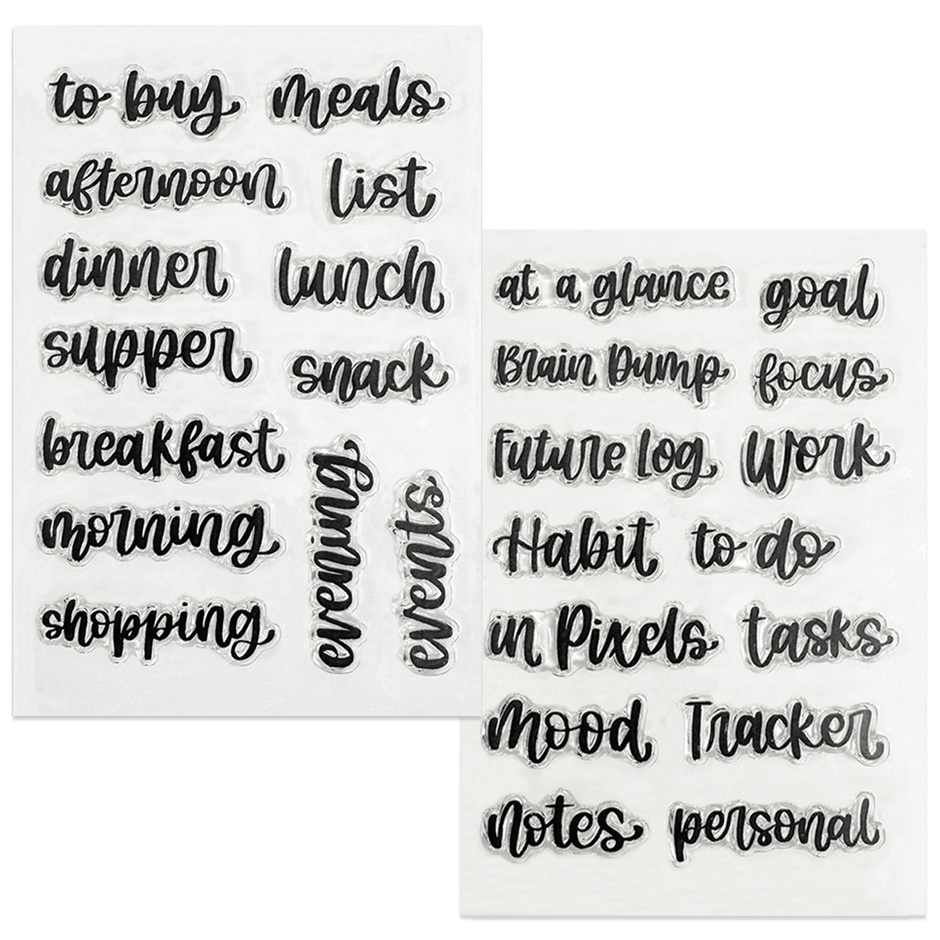 to buy meals
afternoon list
dinner lunch
supper snack
breakfast
morning
shopping
evening
events
at a glance goal
Brain Dump focus
Future Log Work
Habit to do
in Pixels tasks
Mood Tracker
notes personal